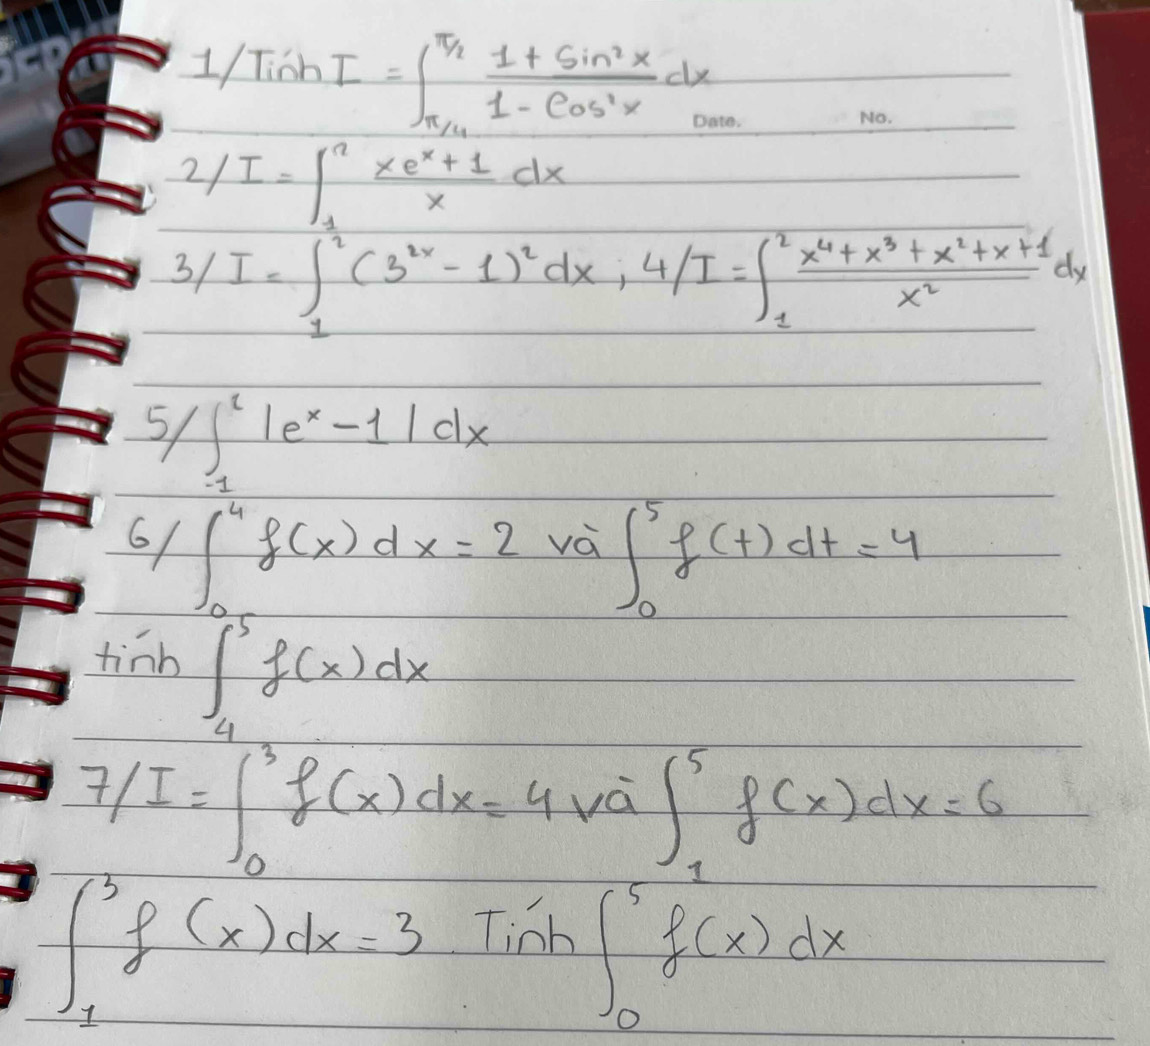 1/ Tính I = ∫_{π/4}^{π/2} (1 + Sin²x)/(1 - Cos²x) dx
Date. No.
2/ I = ∫_1^2 (xeˣ + 1)/x dx
3/ I = ∫_1^2 (3^{2x} - 1)² dx ; 4/ I = ∫_1^2 (x⁴ + x³ + x² + x + 1)/x² dx
5/ ∫_{-1}^2 |eˣ - 1| dx
6/ ∫_0^4 f(x) dx = 2 và ∫_0^5 f(t) dt = 4
tính ∫_4^5 f(x) dx
7/ I = ∫_0^3 f(x) dx = 4 và ∫_1^5 f(x) dx = 6
∫_1^3 f(x) dx = 3 Tính ∫_0^5 f(x) dx